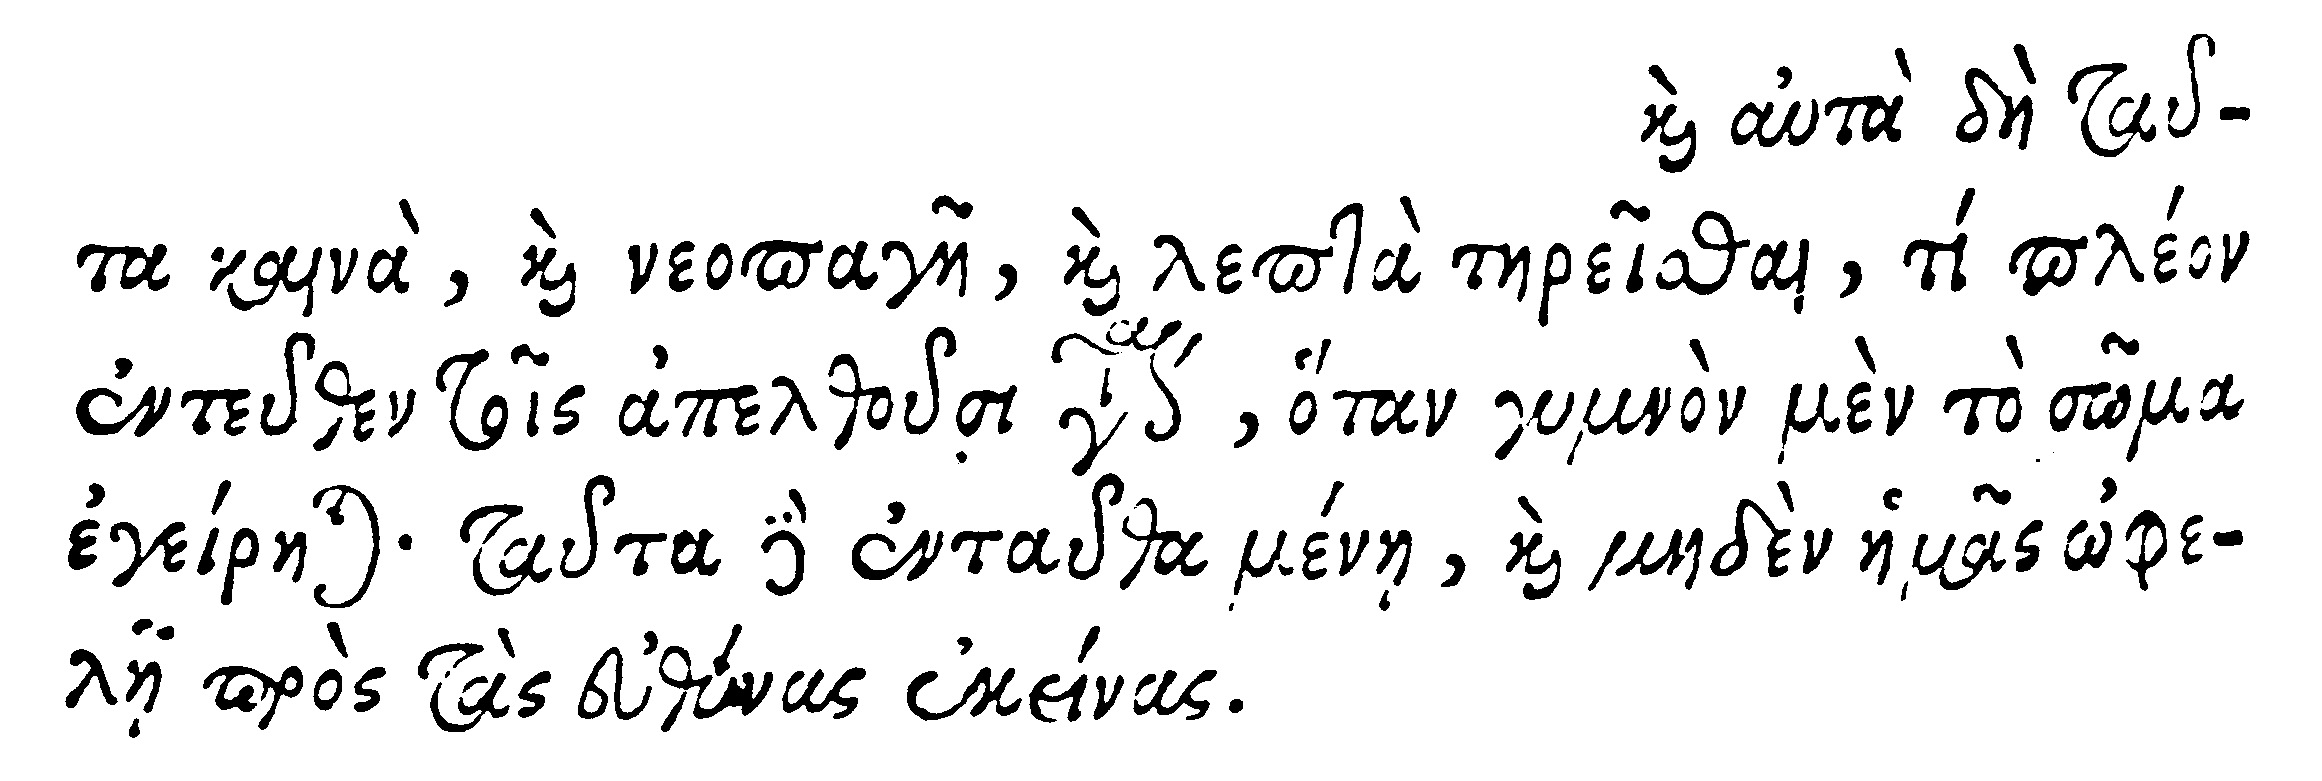 καὶ αὐτὰ δὴ ταῦ-
τα καινὰ, καὶ νεοπαγῆ, καὶ λεπτὰ τηρεῖσθαι, τί πλέον
ἐντεῦθεν τοῖς ἀπελθοῦσι , ὅταν γυμνὸν μὲν τὸ σῶμα
ἐγείρηται. ταῦτα δὲ ἐνταῦθα μένῃ, καὶ μηδὲν ἡμᾶς ὠφε-
λῇ πρὸς τὰς εὐθύνας ἐκείνας.